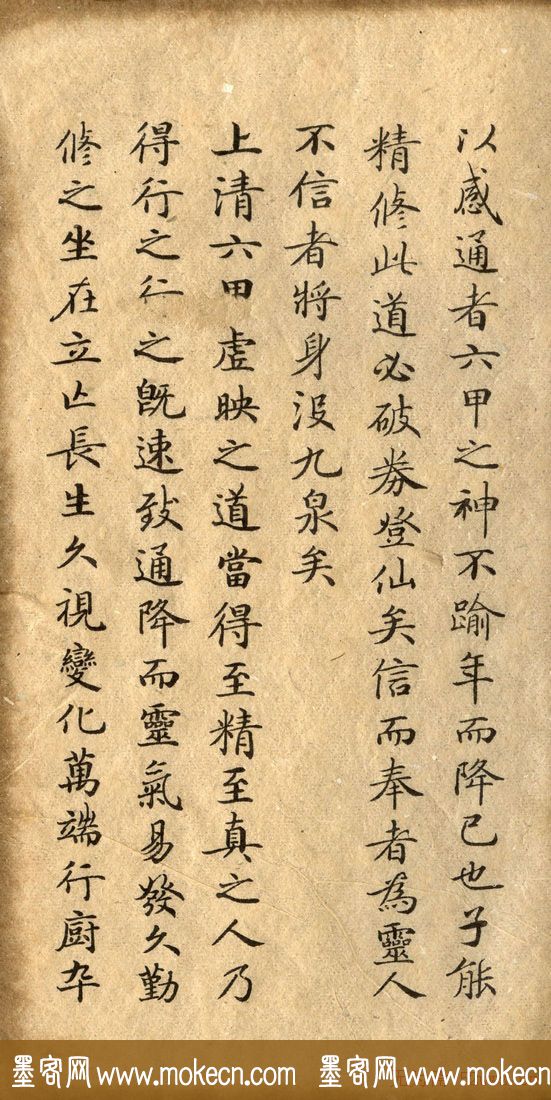 以感通者六甲之神不踰年而降已也子能
精脩此道必破券登仙矣信而奉者為靈人
不信者將身沒九泉矣
上清六甲虛映之道當得至精至真之人乃
得行之行之既速致通降而靈氣易發久勤
脩之坐在立亡長生久視變化萬端行廚卒
墨客网 www.mokecn.com 墨客网 www.mokecn.com